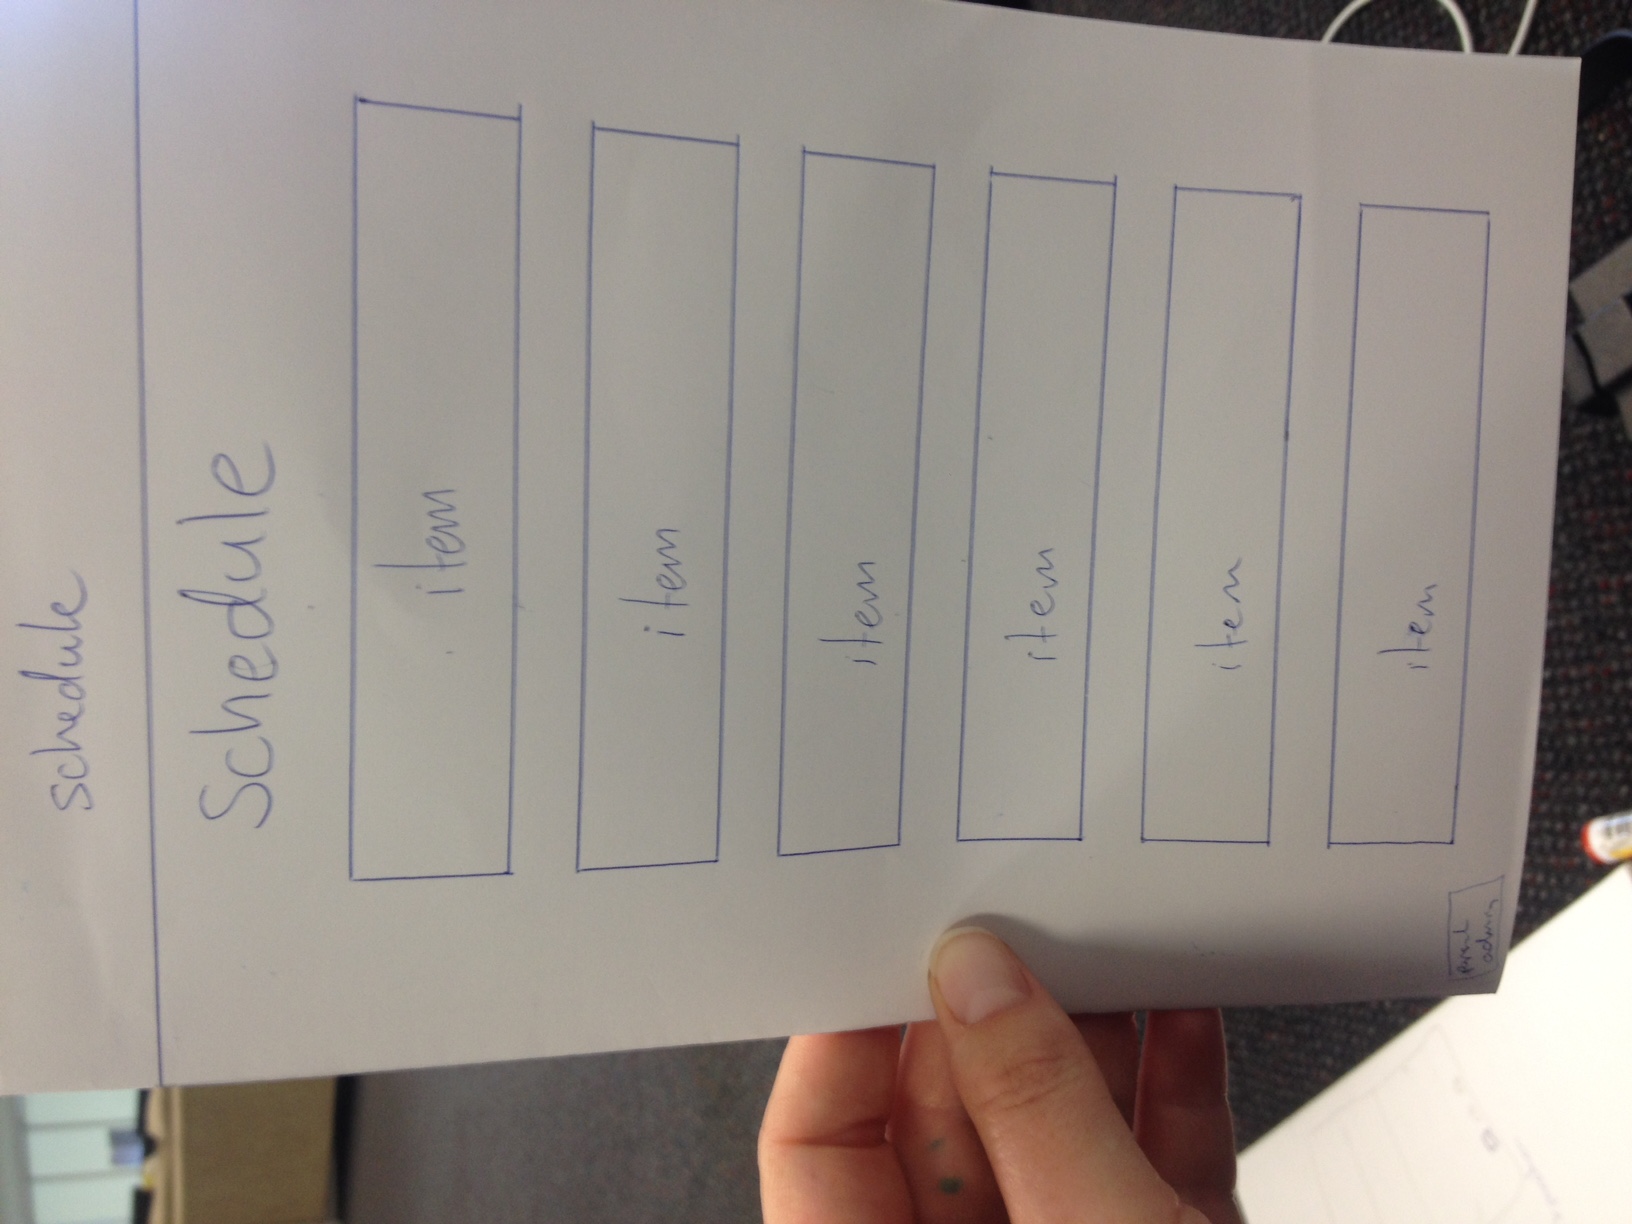 schedule
Schedule
item
item
item
item
item
item
parent
admin